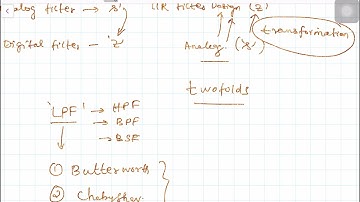 alog filter → 's'
Digital filter - 'z'
IIR filter Design (z)
Analog ('s')
transformation
twofolds
'LPF' → HPF
→ BPF
→ BSF
① Butterworth
② Chebyshev